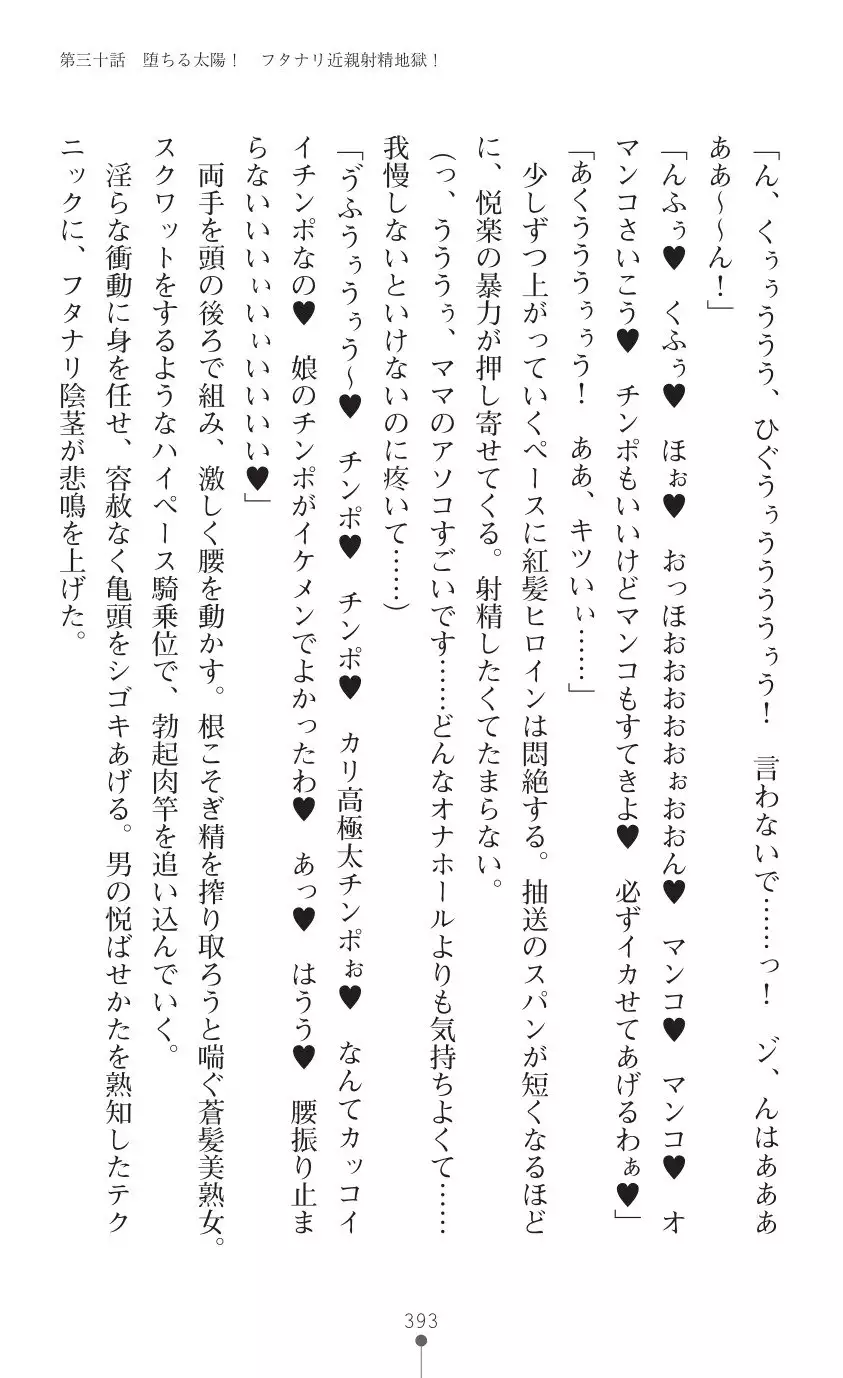 第三十話　堕ちる太陽！　フタナリ近親射精地獄！
「ん、くぅぅううう、ひぐうぅうううぅう！　言わないで……っ！　ゾ、んはあああ
ああ～～ん！」
「んふぅ♥　くふぅ♥　ほぉ♥　おっほおおおおおぉおおん♥　マンコ♥　マンコ♥　オ
マンコさいこう♥　チンポもいいけどマンコもすてきよ♥　必ずイカせてあげるわぁ♥」
「あくうううぅぅう！　ああ、キツいぃ……」
　少しずつ上がっていくペースに紅髪ヒロインは悶絶する。抽送のスパンが短くなるほど
に、悦楽の暴力が押し寄せてくる。射精したくてたまらない。
（っ、うううぅ、ママのアソコすごいです……どんなオナホールよりも気持ちよくて……
我慢しないといけないのに疼いて……）
「ゔふうぅうぅう～♥　チンポ♥　チンポ♥　カリ高極太チンポぉ♥　なんてカッコイ
イチンポなの♥　娘のチンポがイケメンでよかったわ♥　あっ♥　はうう♥　腰振り止ま
らないいいいぃいぃいいいいい♥」
　両手を頭の後ろで組み、激しく腰を動かす。根こそぎ精を搾り取ろうと喘ぐ蒼髪美熟女。
スクワットをするようなハイペース騎乗位で、勃起肉竿を追い込んでいく。
　淫らな衝動に身を任せ、容赦なく亀頭をシゴキあげる。男の悦ばせかたを熟知したテク
ニックに、フタナリ陰茎が悲鳴を上げた。
393